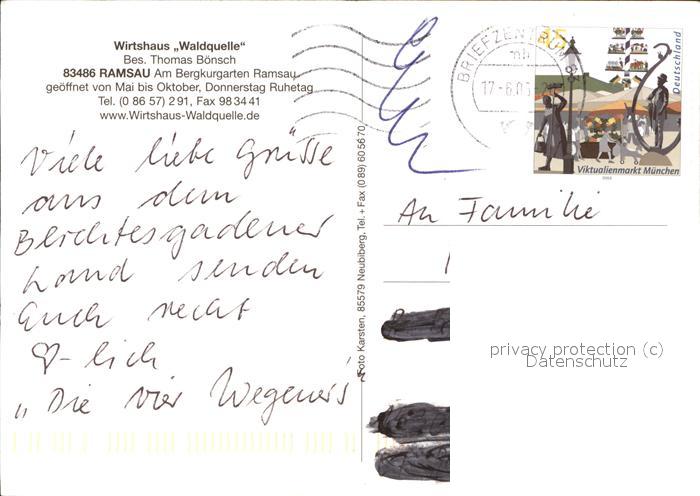 Wirtshaus „Waldquelle“
Bes. Thomas Bönsch
83486 RAMSAU Am Bergkurgarten Ramsau
geöffnet von Mai bis Oktober, Donnerstag Ruhetag
Tel. (0 86 57) 2 91, Fax 98 34 41
www.Wirtshaus-Waldquelle.de
Viele liebe Grüsse
aus dem
Berchtesgadener
Land senden
Euch recht
♡-lich
„Die vier Wegeners“
Foto Karsten, 85579 Neubiberg, Tel.+ Fax (0 89) 60 56 70
BRIEFZENTRUM 83
45
Deutschland
Viktualienmarkt München
2003
An Familie
privacy protection (c)
Datenschutz